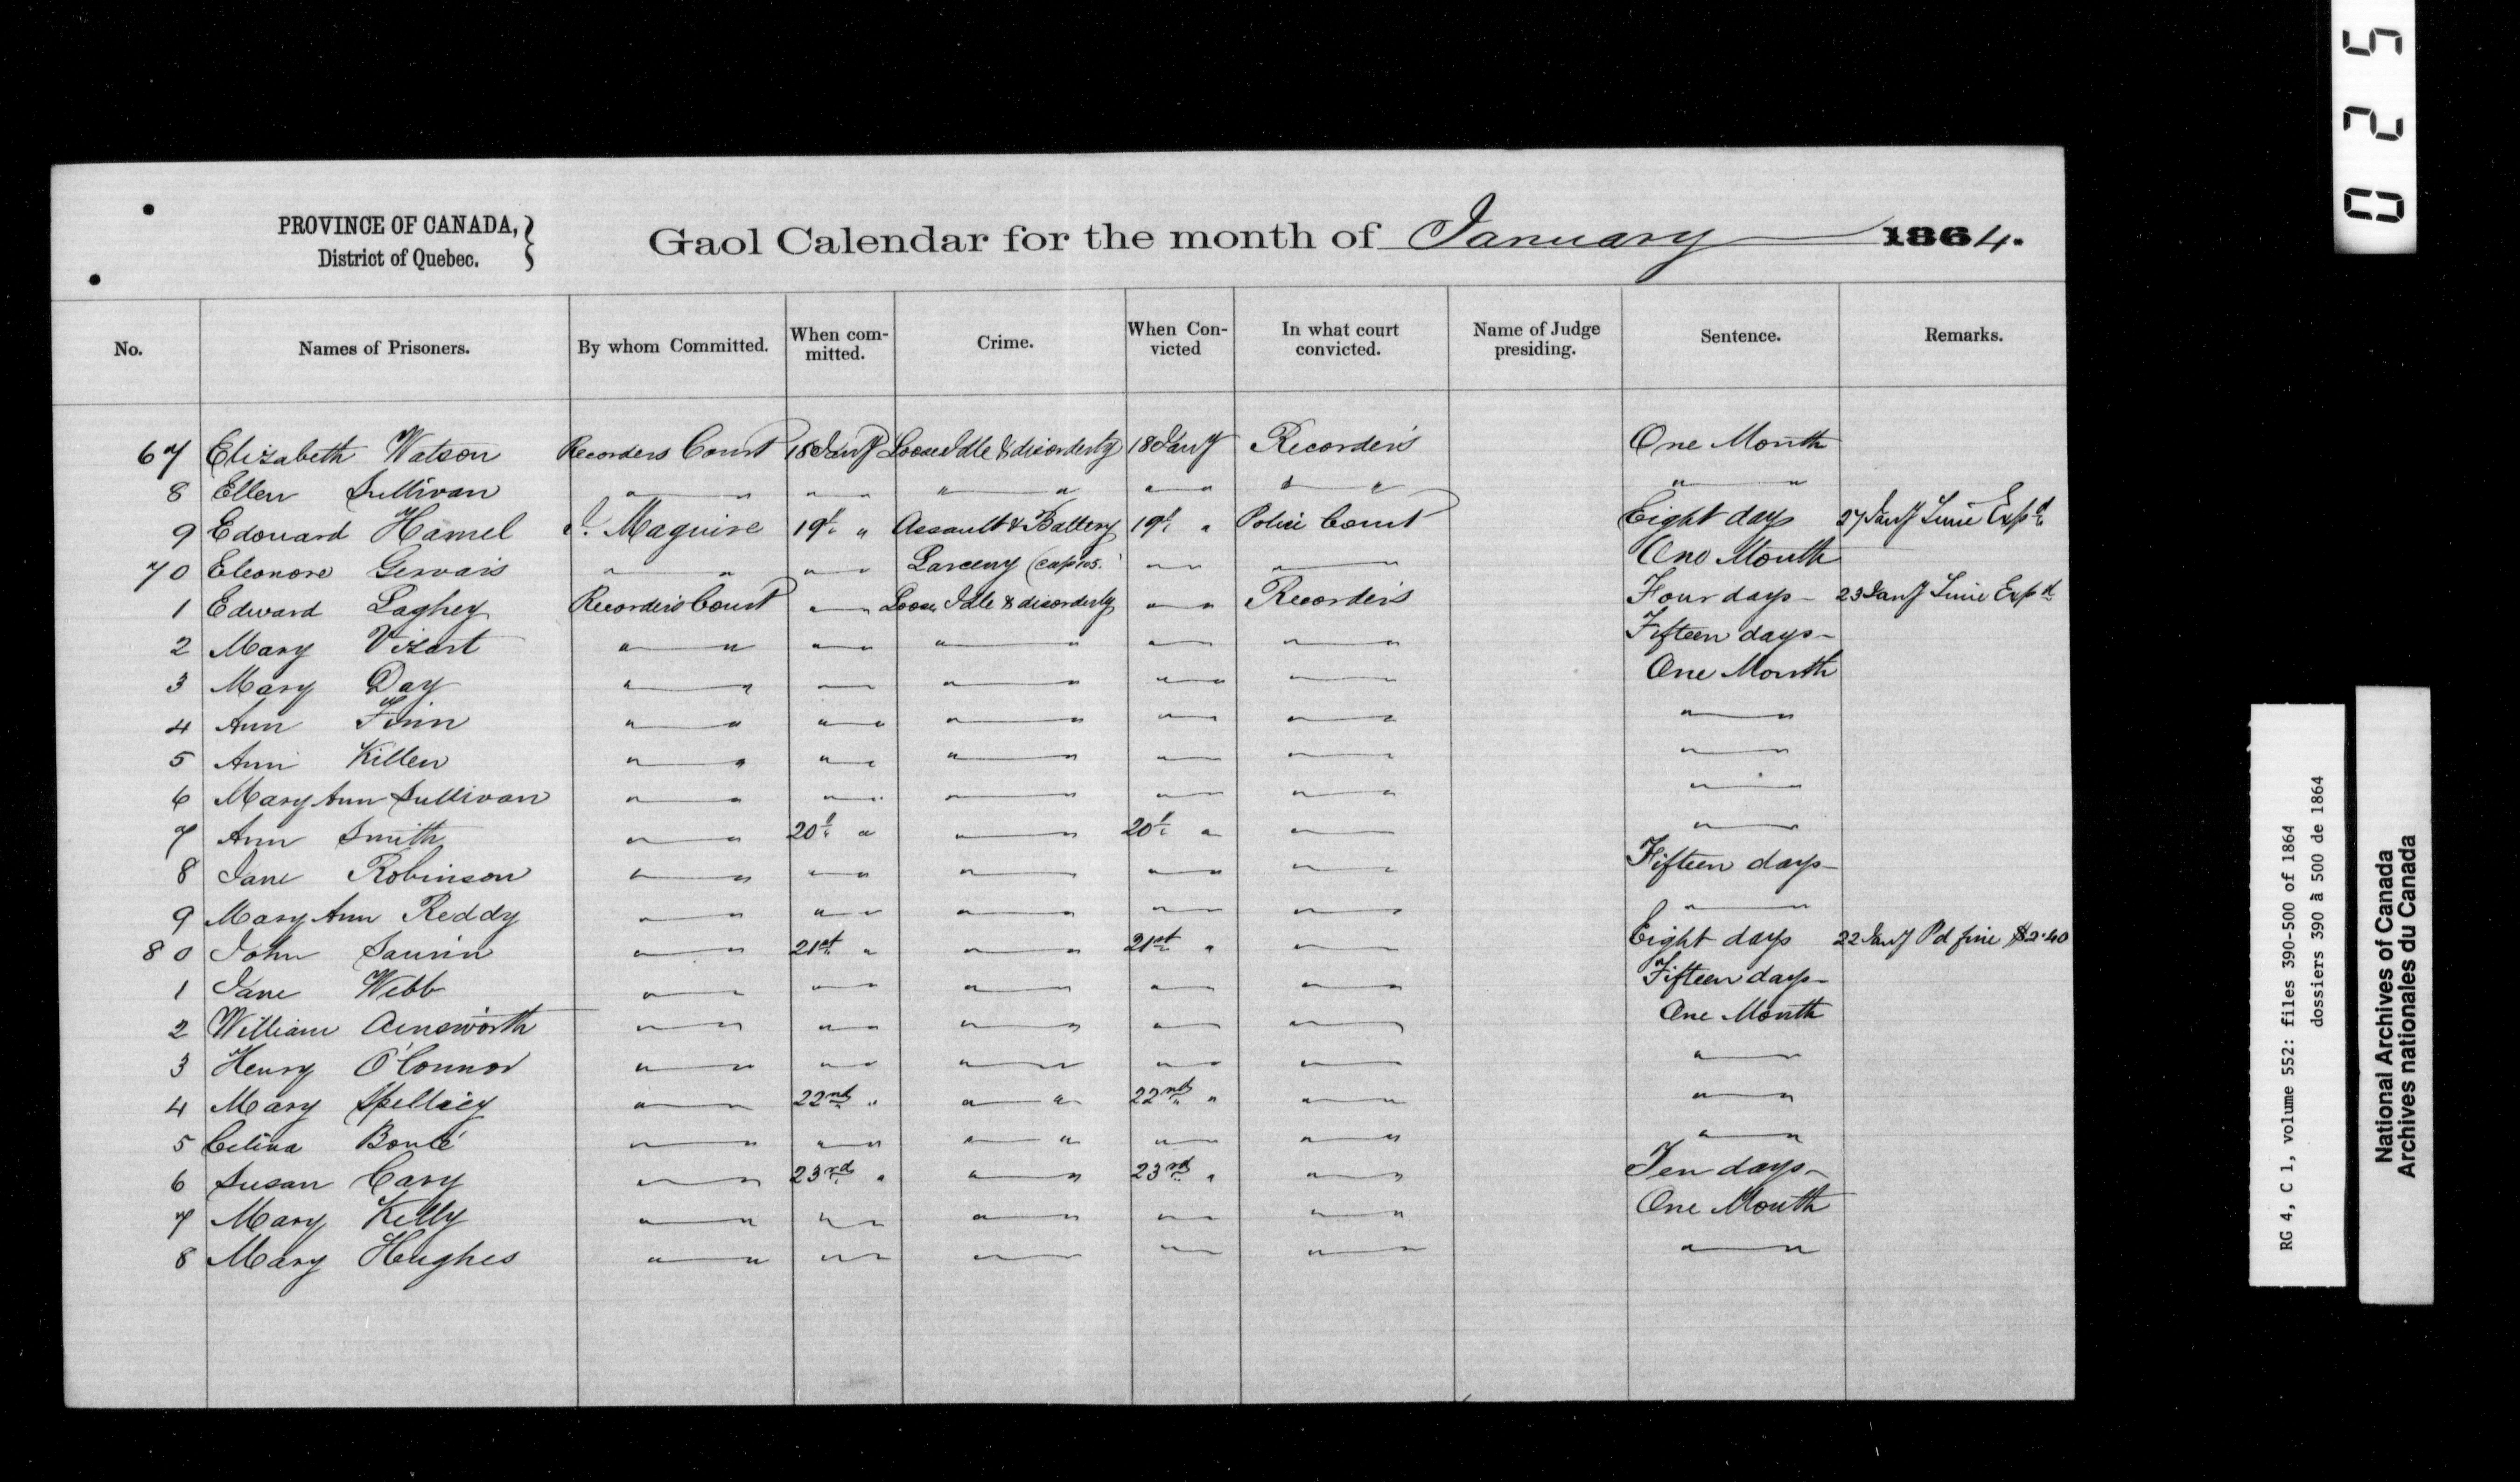 PROVINCE OF CANADA, }
District of Quebec.
Gaol Calendar for the month of January 1864.
No. Names of Prisoners. By whom Committed. When com-mitted. Crime. When Con-victed In what court convicted. Name of Judge presiding. Sentence. Remarks.
67 Elizabeth Watson Recorders Court 18 Jany Loose Idle & disorderly 18 Jany Recorder's One Month
8 Ellen Sullivan " " " " " " " " " " " "
9 Edouard Hamel J. Maguire 19th " Assault & Battery 19th " Police Court Eight days 27 Jany Time Expd
70 Eleonore Gervais " " " " Larceny " " " " One Month
1 Edward Laghey Recorder's Court " " Loose, Idle & disorderly " " Recorder's Four days - 23 Jany Time Expd
2 Mary Vizart " " " " " " " " " " Fifteen days -
3 Mary Day " " " " " " " " " " One Month
4 Ann Finn " " " " " " " " " " " "
5 Ann Killen " " " " " " " " " " " "
6 Mary Ann Sullivan " " " " " " " " " " " "
7 Ann Smith " " 20th " " " 20th " " " " "
8 Jane Robinson " " " " " " " " " " Fifteen days -
9 Mary Ann Reddy " " " " " " " " " " " "
80 John Saurin " " 21st " " " 21st " " " Eight days 22 Jany Pd fine $2.40
1 Jane Webb " " " " " " " " " " Fifteen days -
2 William Ainsworth " " " " " " " " " " One Month
3 Henry O'Connor " " " " " " " " " " " "
4 Mary " " 22nd " " " 22nd " " " " "
5 Celina " " " " " " " " " " " "
6 Susan Cary " " 23rd " " " 23rd " " " Ten days -
7 Mary Kelly " " " " " " " " " " One Month
8 Mary Hughes " " " " " " " " " " " "
025
RG 4, C 1, volume 552: files 390-500 of 1864
dossiers 390 à 500 de 1864
National Archives of Canada
Archives nationales du Canada